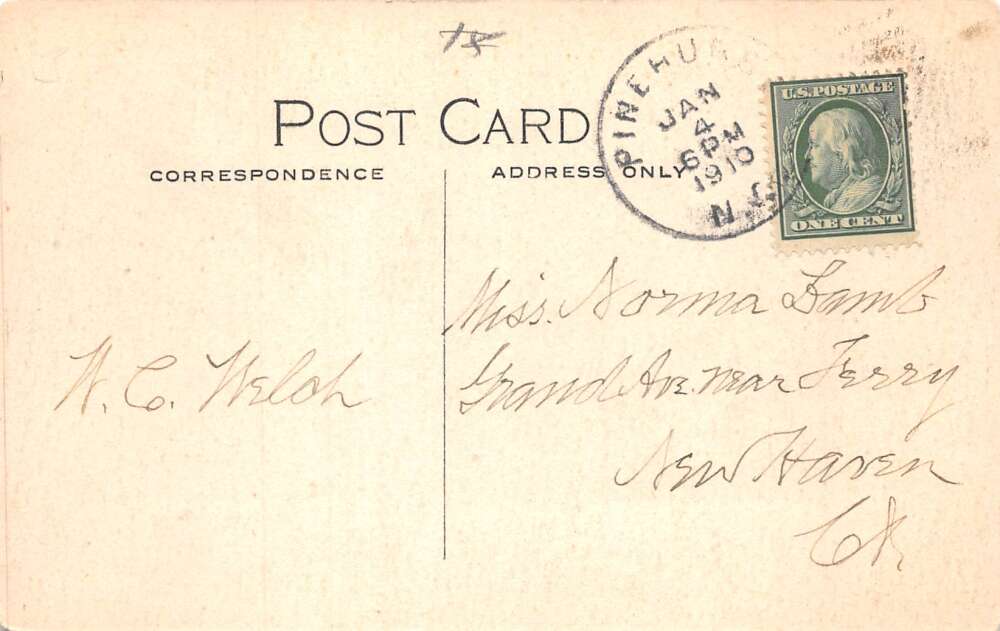 18
POST CARD
CORRESPONDENCE
ADDRESS ONLY
PINEHURS
JAN
4
6 PM
1910
N.C.
U.S. POSTAGE
ONE CENT
Miss. Norma Lamb
Grand Ave. near Ferry
New Haven
Ct.
W. C. Welch